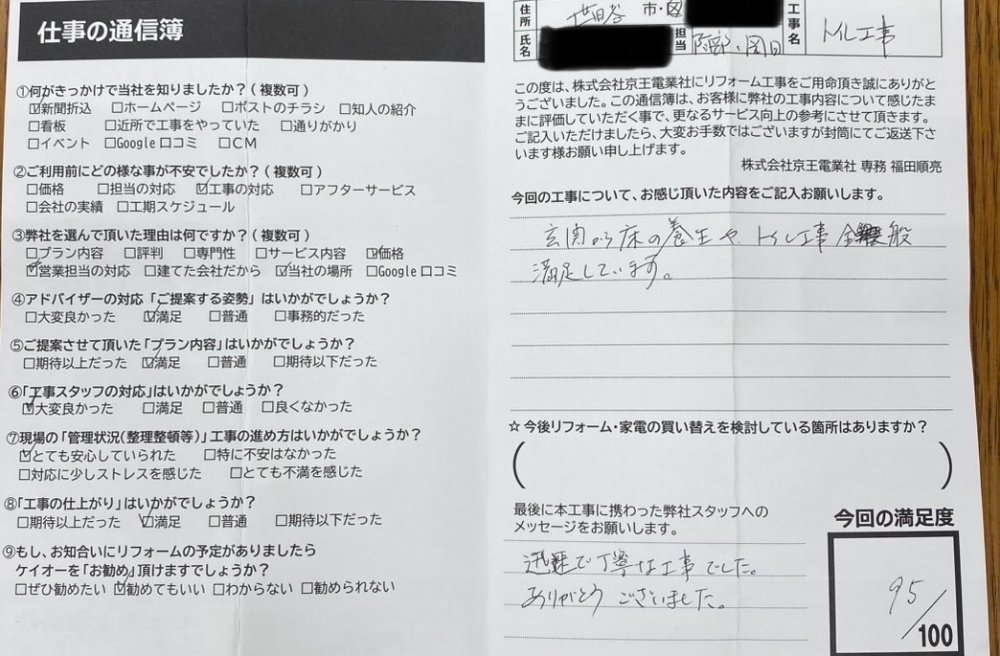 仕事の通信簿
①何がきっかけで当社を知りましたか？(複数可)
☑新聞折込 □ホームページ □ポストのチラシ □知人の紹介
□看板 □近所で工事をやっていた □通りがかり
□イベント □Google口コミ □CM
②ご利用前にどの様な事が不安でしたか？(複数可)
□価格 □担当の対応 ☑工事の対応 □アフターサービス
□会社の実績 □工期スケジュール
③弊社を選んで頂いた理由は何ですか？(複数可)
□プラン内容 □評判 □専門性 □サービス内容 ☑価格
☑営業担当の対応 □建てた会社だから ☑当社の場所 □Google口コミ
④アドバイザーの対応「ご提案する姿勢」はいかがでしょうか？
□大変良かった ☑満足 □普通 □事務的だった
⑤ご提案させて頂いた「プラン内容」はいかがでしょうか？
□期待以上だった ☑満足 □普通 □期待以下だった
⑥「工事スタッフの対応」はいかがでしょうか？
☑大変良かった □満足 □普通 □良くなかった
⑦現場の「管理状況(整理整頓等)」工事の進め方はいかがでしょうか？
☑とても安心していられた □特に不安はなかった
□対応に少しストレスを感じた □とても不満を感じた
⑧「工事の仕上がり」はいかがでしょうか？
□期待以上だった ☑満足 □普通 □期待以下だった
⑨もし、お知合いにリフォームの予定がありましたら
ケイオーを「お勧め」頂けますでしょうか？
□ぜひ勧めたい ☑勧めてもいい □わからない □勧められない
住所 世田谷 市・区
氏名 担当 阿部、岡田
工事名 トイレ工事
この度は、株式会社京王電業社にリフォーム工事をご用命頂き誠にありがと
うございました。この通信簿は、お客様に弊社の工事内容について感じたま
まに評価していただく事で、更なるサービス向上の参考にさせて頂きます。
ご記入いただけましたら、大変お手数ではございますが封筒にてご返送下さ
います様お願い申し上げます。
株式会社京王電業社 専務 福田順亮
今回の工事について、お感じ頂いた内容をご記入お願いします。
玄関から床の養生や、トイレ工事 全般
満足しています。
☆今後リフォーム・家電の買い替えを検討している箇所はありますか？
( )
最後に本工事に携わった弊社スタッフへの
メッセージをお願いします。
迅速で丁寧な工事でした。
ありがとうございました。
今回の満足度
95/100